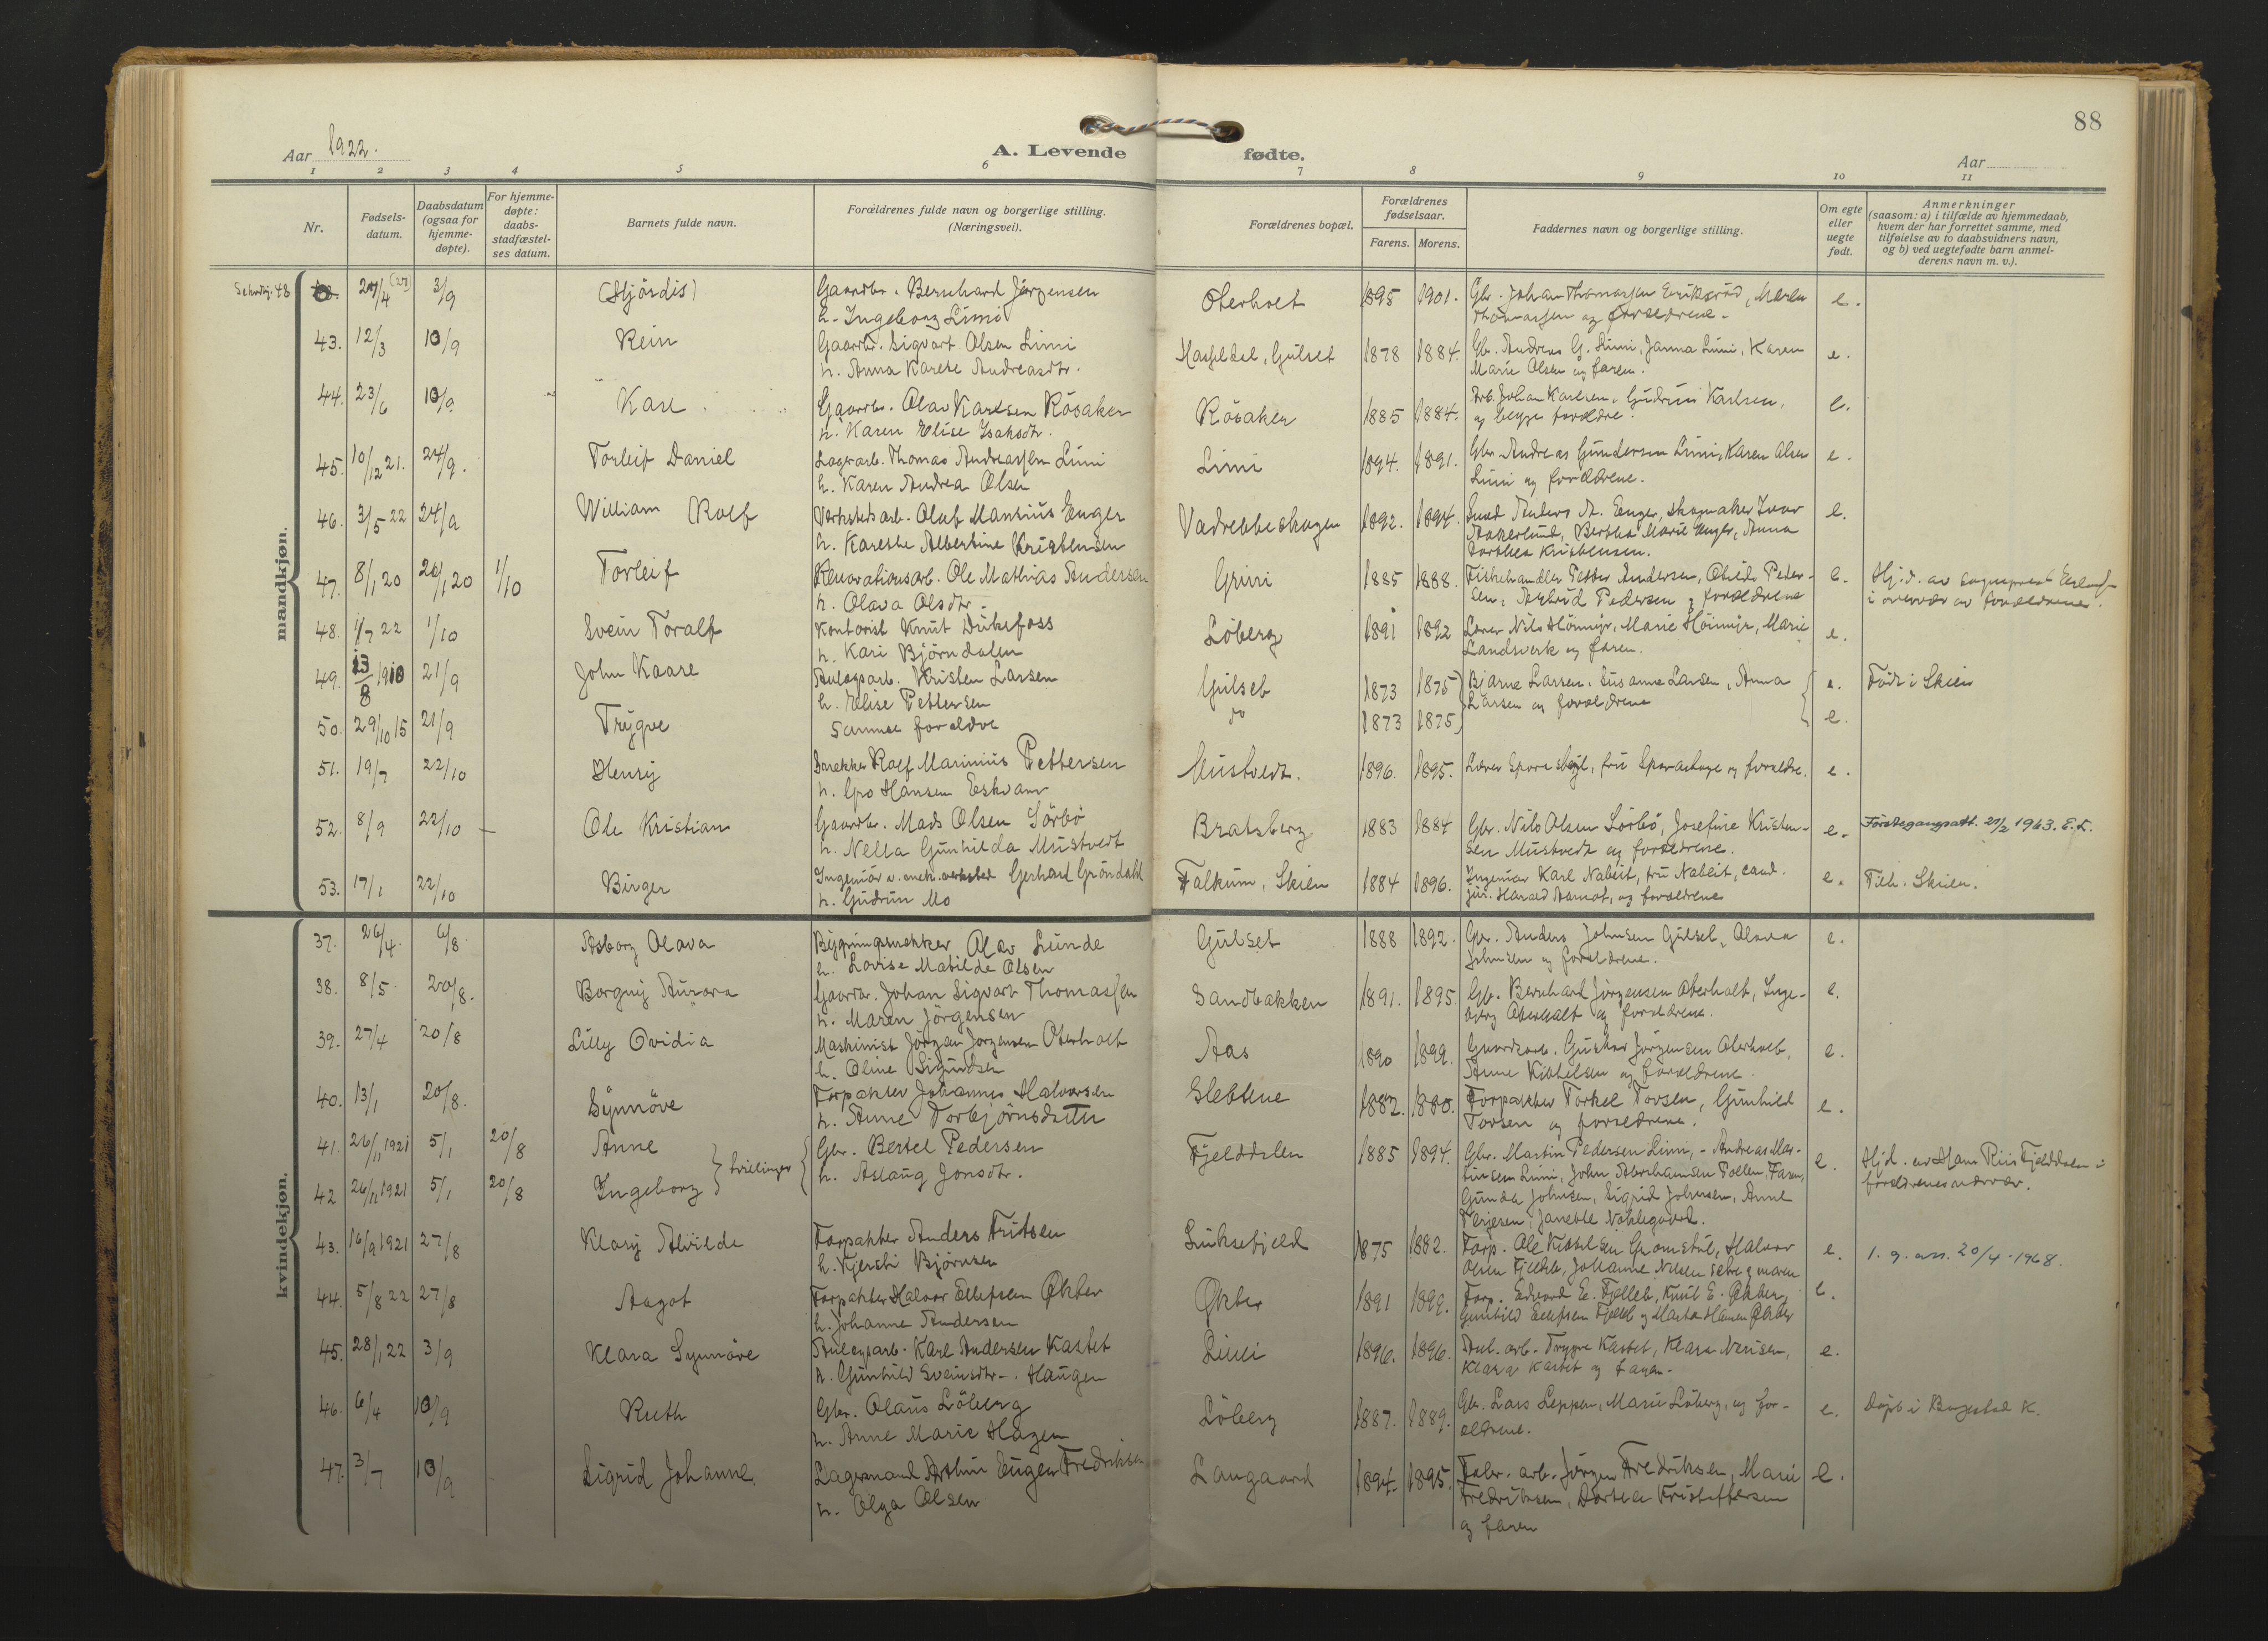 88
Aar 1922.
A. Levende fødte.
Aar
1 2 3 4 5 6 7 8 9 10 11
Nr.
Fødsels-
datum.
Daabsdatum
(ogsaa for
hjemme-
døpte).
For hjemme-
døpte:
daabs-
stadfæstel-
ses datum.
Barnets fulde navn.
Forældrenes fulde navn og borgerlige stilling.
(Næringsvei).
Forældrenes bopæl.
Forældrenes
fødselsaar.
Farens. Morens.
Faddernes navn og borgerlige stilling.
Om egte
eller
uegte
født.
Anmerkninger
(saasom: a) i tilfælde av hjemmedaab,
hvem der har forrettet samme, med
tilføielse av to daabsvidners navn,
og b) ved uegtefødte barn anmel-
derens navn m. v.).
mandkjøn.
48 27/4 3/9 (Hjördis) Gaardbr. Bernhard Jörgensen Oterholt 1895 1901. Gbr. Johan Thomassen Eriksröd, Maren e.
h. Ingeborg Limi Thomassen og forældrene.
43. 12/3 10/9 Rein Gaardbr. Sigvart Olsen Limi Gulset 1878 1884. Gb. Andreas G. Limi, Janna Limi, Karen e.
h. Anna Karete Andreasdtr. Marie Olsen og faren.
44. 23/6 10/9 Kare Gaardbr. Olav Karlsen Rösaker Rösaker 1885 1884. Arb. Johan Karlsen, Gudrun Karlsen, e.
h. Karen Elise Isaksdtr. og begge forældre.
45. 10/12 21. 24/9. Torleif Daniel Lagerarb. Thomas Andreassen Limi Limi 1894. 1891. Gbr. Andreas Gundersen Limi, Karen Olsen e.
h. Karen Andrea Olsen Limi og forældrene.
46. 3/5 22 24/9 William Rolf Verkstedsarb. Oluf Mansius Enger Vadrebbeskogen 1892. 1894. Anders A. Enger, skomaker Ivar e.
h. Karethe Albertine Kristensen Aakerlund, Bertha Marie Enger, Anna
Dorthea Kristensen.
47. 8/1 20 20/1 20 1/10 Torleif Renovationsarb. Ole Mathias Andersen Grini 1885 1888. Fiskehandler Petter Andersen, Peder- e. Hj.d. av sogneprest
h. Olava Olsdtr. sen, Astrid Pedersen og forældrene i overvær av forældrene.
48. 1/7 22 1/10 Svein Toralf Kontorist Knut Dukefoss Löberg 1891 1892 Lærer Nils Höimyr, Marie Höimyr, Marie e.
h. Kari Björndalen Landsverk og faren.
49. 13/8 1910 21/9 John Kaare Anlegsarb. Kristen Larsen Gulset 1873 1875 Bjarne Larsen, Susanne Larsen, Anna e. Född i Skien
h. Elise Pettersen Larsen og forældrene
50. 29/10 15 21/9 Trygve Samme forældre do 1873 1875 e.
51. 19/7 22/10 Henry Snekker Rolf Marinius Pettersen Mustvedt. 1896. 1895. Lærer fru og forældre. e.
h. Gro Hansen
52. 8/9 22/10 – Ole Kristian Gaardbr. Mads Olsen Sörbö Bratsberg 1883 1884 Gbr. Nils Olsen Sörbö, Josefine Kristen- e. Förstegangsatt. 21/2 1963. E.L.
h. Nella Gunhilda Mustvedt sen Mustvedt og forældrene.
53. 17/1 22/10 Birger Ingeniör v. mek. verksted Gerhard Gröndahl Falkum, Skien 1884 1896. Ingeniør Karl Nabeit, fru Nabeit, cand. e. Tilh. Skien.
h. Gudrun Mo jur. Harald Aamot, og forældrene
kvindekjøn.
37. 26/4. 6/8 Asborg Olava Bygningsnekker Olav Lunde Gulset 1888 1892. Gbr. Anders Johnsen Gulset, Olava e.
h. Lovise Matilde Olsen Johnsen og forældrene.
38. 8/5 20/8. Borgny Aurora Gaardbr. Johan Sigvart Thomassen Sandbakken 1891. 1895. Gb. Bernhard Jörgensen Oterholt, Inge- e.
h. Maren Jörgensen borg Oterholt og forældrene.
39. 27/4 20/8 Lilly Ovidia Maskinist Jörgen Jörgensen Oterholt Aas 1890 1899. Gustav Jörgensen Oterholt, e.
h. Oline Sigurdsen Anne Kittilsen og forældrene.
40. 13/1 20/8. Synnöve Forpakter Johannes Halvorsen Slettene 1882. 1880. Forpakter Torkel Tovsen, Gunhild e.
h. Anne Torbjörnsdatter Tovsen og forældrene.
41. 26/11 1921 5/1 20/8 Anne Gbr. Bertel Pedersen Fjelddalen 1885 1894. Gbr. Martin Pedersen Limi, Andreas Mar- e. Hjd. av Hans Riis Fjelddalen i
42 26/11 1921 5/1 20/8 Ingeborg tvillinger h. Aslaug Jonsdtr. tinsen Limi, John Abrahamsen Pollen, Faren, forældrenes nærvær.
Gunda Johnsen, Sigrid Johnsen, Anne
Terjesen, Janette Nöklegaard.
43. 16/9 1921 27/8 Klary Alvilde Forpakter Anders Fritsen Luksefjeld 1875 1882. Forp. Ole Kittilsen Gromstul, Halvor e. 1. g. att. 20/4 - 1968.
h. Kjersti Björnsen Olsen Johanne Nilsen
44. 5/8 22 27/8 Aagot Forpakter Halvor Ellefsen Økter Økter 1891 1899. Forp. Edvard E. Knut E. Økter, e.
h. Johanne Andersen Gunhild Ellefsen og Marta Hansen Økter
45. 28/1 22 3/9 Klara Synnöve Anlegsarb. Karl Andersen Kastet Limi 1896. 1896. Anl. arb. Trygve Kastet, Klara Nirisen, e.
h. Gunhild Sveinsdtr. Haugen Klara Kastet og faren.
46. 6/4 10/9 Ruth Gbr. Olaus Löberg Löberg 1887. 1889. Gbr. Lars Leppen, Marie Löberg, og for- e. Döpt i K.
h. Anne Marie Hagen ældrene.
47. 3/7 10/9 Sigrid Johanne Lagermand Arthur Eugen Fredriksen Langaard 1894. 1895. Fabr. arb. Jörgen Fredriksen, Marie e.
h. Olga Olsen Fredriksen, Dorthea Kristoffersen
og faren